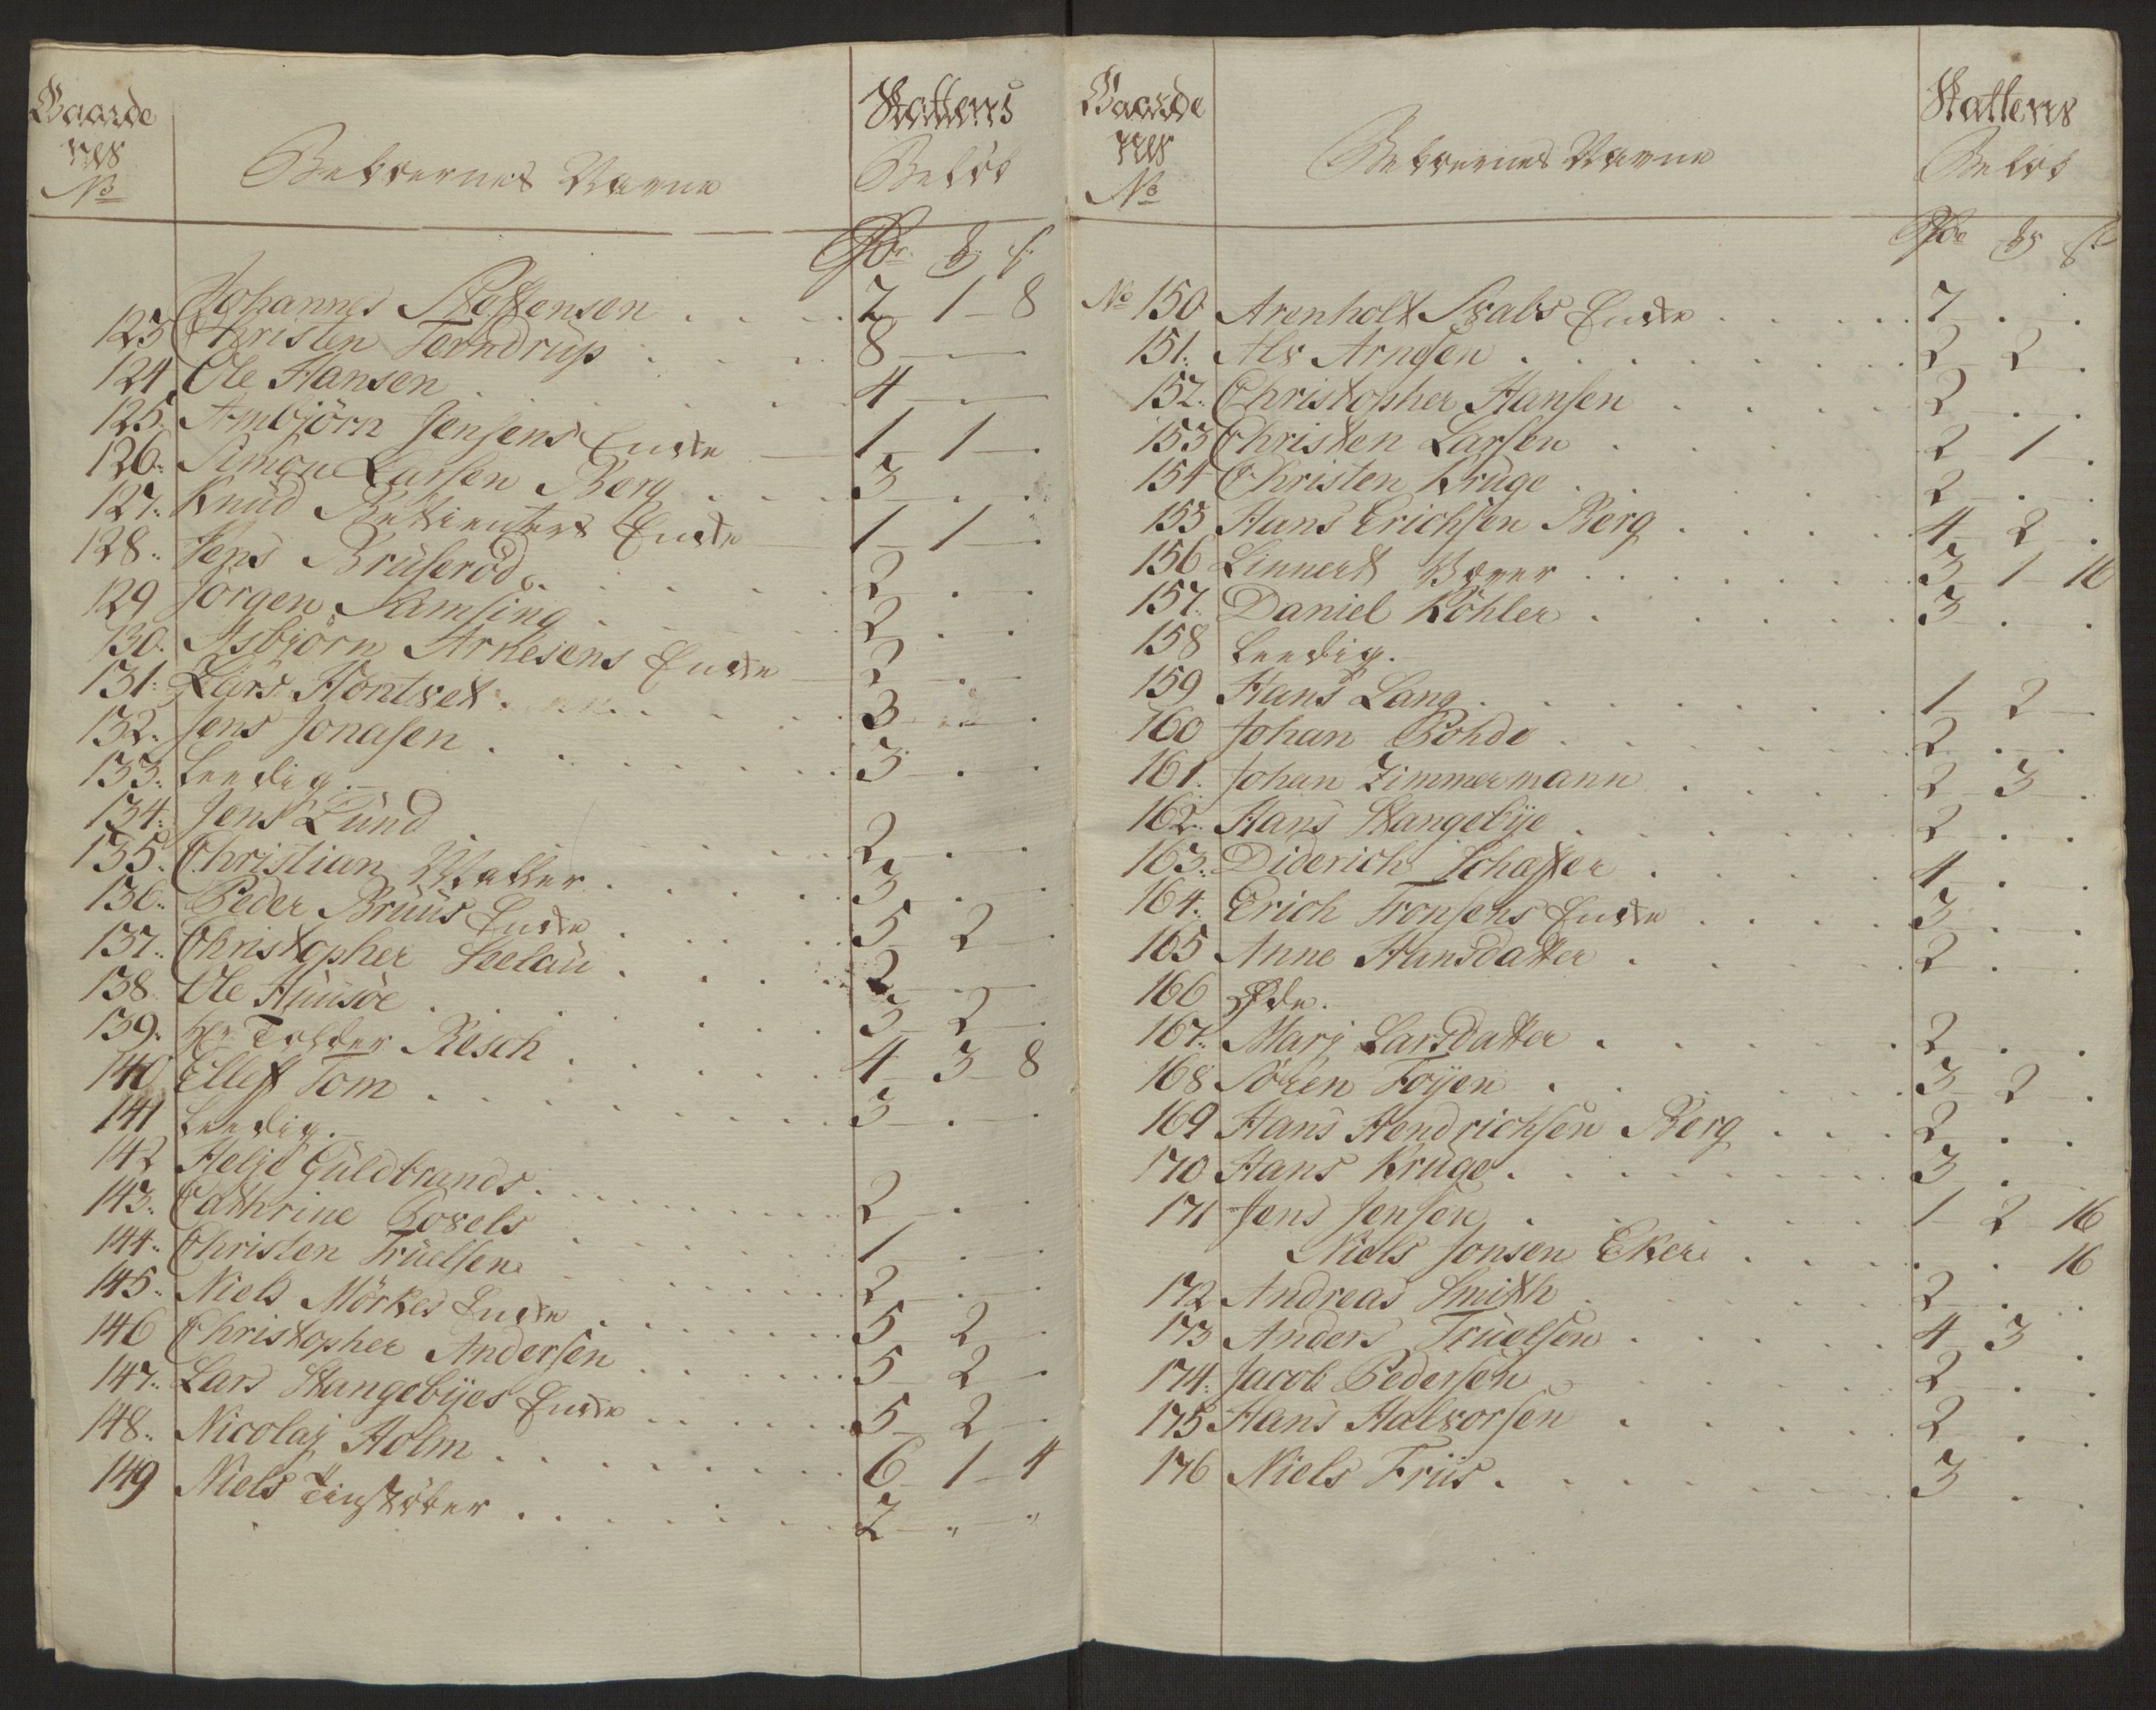 Gaarde
nes
No
Beboernes Navne
Skattens
Beløb
Rdr. ß
Johannes Steffensen . . . . 2 1 8
123 Christen Terndrup . . . 8
124 Ole Hansen . . . 4
125. Ambiörn Jensens Encke 1 1
126. Simon Larsen Berg . . . 3
127. Knud Encke 1 1
128. Jens Bruserød . . . 2
129 Jørgen Samsing . . . 2
130. Asbiörn Arnesens Encke 2
131. Lars Hontvet . . . 3
132. Jens Jonasen . . . 3
133. Leedig.
134. Jens Lund . . . 2
135. Christian . . . 3
136. Peder Bruus Encke . . . 5 2
137. Christopher Seelau . . . 2
138. Ole Huusøe . . . 3 2
139. Hr Tolder Resch . . . 4 3 8
140 Elleff Tom . . . 3
141 Leedig.
142 Helje Guldbrands . . . 2
143. Cathrine Povels . . . 1
144. Christen Truelsen . . . 2
145. Niels Mörkes Encke . . . 5 2
146 Christopher Andersen . . . 5 2
147. Lars Stangebÿes Encke . . . 5 2
148. Nicolaj Holm . . . 6 1 4
149 Niels Tinstöber . . . 2 " "
Gaarde
nes
No
Beboernes Navne
Skattens
Beløb
Rdr ß
No 150 Arenholt Svabs Encke . . . 7
151. Alv Arngsen . . . 2 2
152. Christopher Hansen . . . 2
153 Christen Larsen . . . 2 1
154 Christen Kruge . . . 2
155 Hans Erichsen Berg . . . 4 2
156 Linnert Væver . . . 3 1 16
157. Daniel Köhler . . . 3
158 Leedig.
159 Hans Lang . . . 1 2
160 Johan Bohde . . . 2
161. Johan Zimmermann . . . 2 3
162. Hans Stangebÿe . . . 2
163. Diderich Schaffer . . . 4
164. Erich Tronsens Encke . . . 3
165 Anne Hansdatter . . . 2
166 Øde.
167. Marj Larsdatter . . . 2
168 Sören Foÿen . . . 3 2
169 Hans Hendrichsen Berg . . . 2
170 Hans Kruge . . . 3
171 Jens Jensen . . . 1 2 16
Niels Jonsen Eker . . . 16
172 Andreas Smith . . . 2
173 Anders Truelsen . . . 4 3
174. Jacob Pedersen . . . 2
175 Hans Halvorsen . . . 2
176 Niels Friis . . . 3